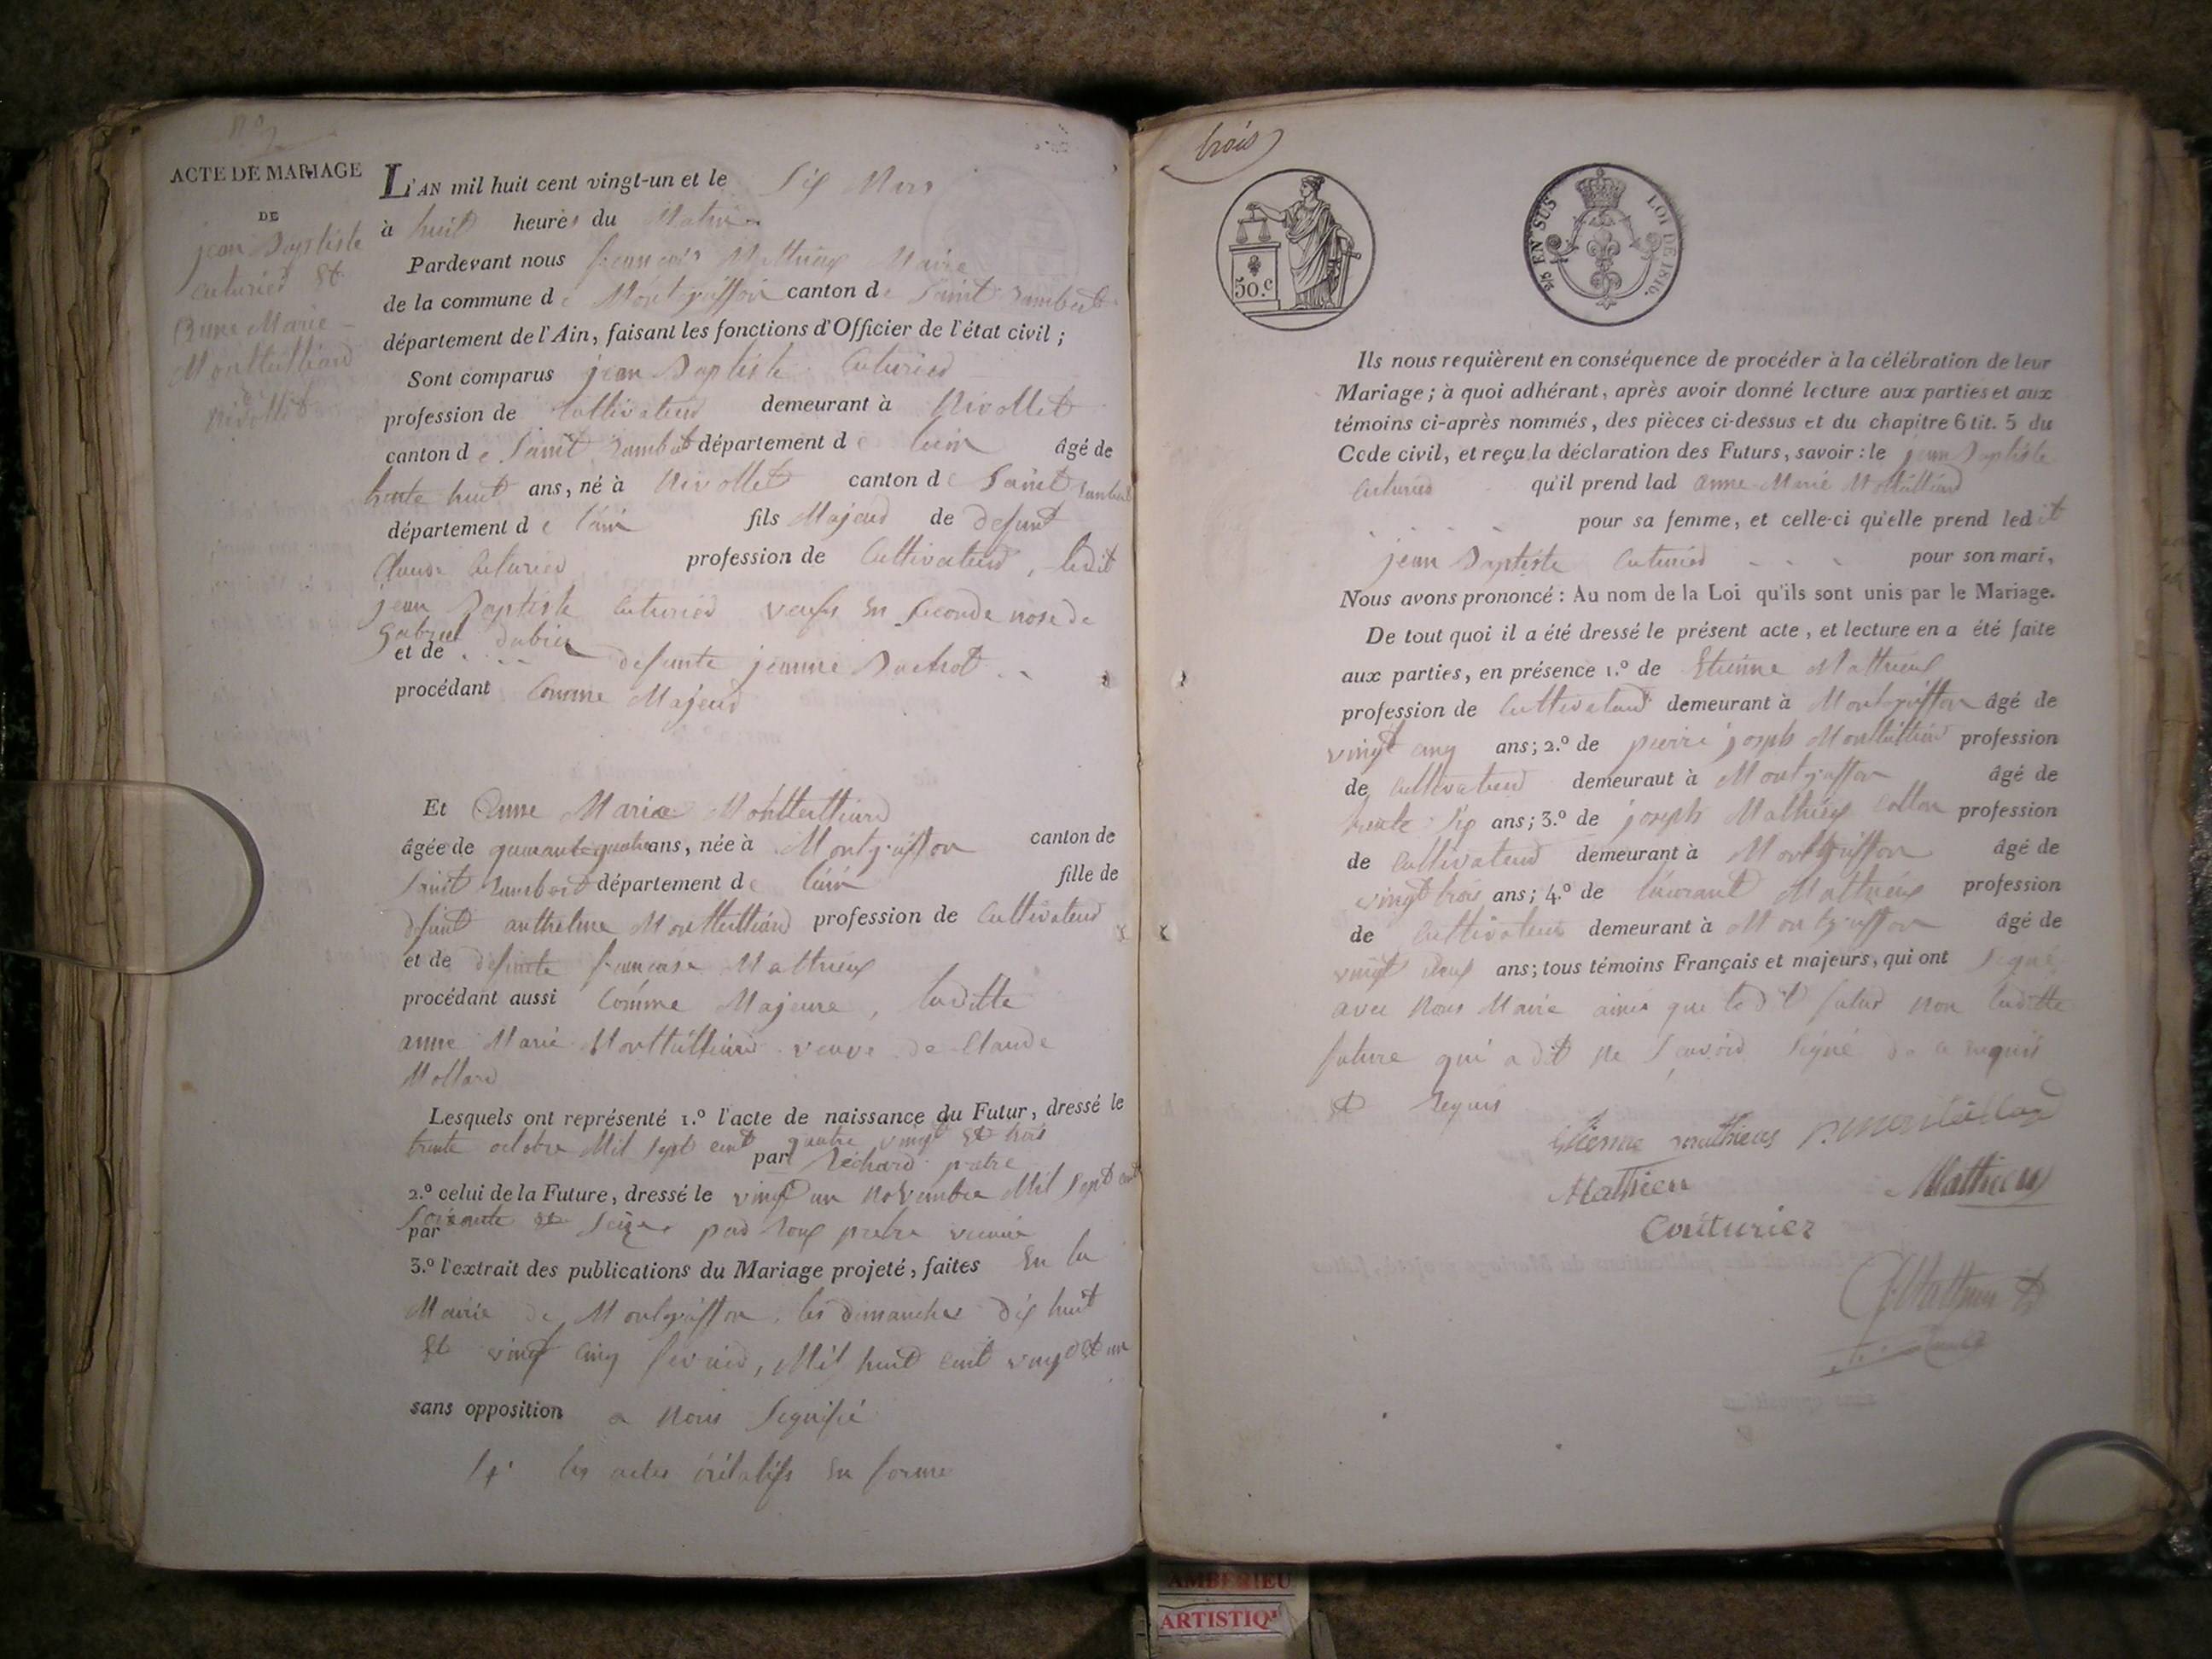 nº 2
ACTE DE MARIAGE
DE
jean Baptiste
Cuturier Et
Anne Marie
Monttuilliard
Nivollet
L'AN mil huit cent vingt-un et le Six Mars
à huit heures du Matin
Pardevant nous francois Mathieux Maire
de la commune de Montgriffon canton de Saint Rambert
département de l'Ain, faisant les fonctions d'Officier de l'état civil ;
Sont comparus jean Baptiste Cuturier
profession de Cultivateur demeurant à Nivollet
canton de Saint Rambert département de lain âgé de
trente huit ans, né à Nivollet canton de Saint Rambert
département de l'ain fils Majeur de defunt
Claude Cuturier profession de Cultivateur, ledit
jean Baptiste Cuturier veufs En seconde nose de
Gabriel dubien
et de defunte jeanne Bachot
procédant Comme Majeur
Et Anne Marie Monttuilliard
âgée de quarante quatre ans, née à Montgriffon canton de
Saint Rambert département de l'ain fille de
defunt anthelme Monttuilliard profession de Cultivateur
et de defunte francoise Mathieux
procédant aussi Comme Majeure, laditte
anne Marie Monttuilliard veuve de Claude
Mollard
Lesquels ont représenté 1.º l'acte de naissance du Futur, dressé le
trente octobre Mil Sept cent quatre vingt Et trois
par Richard pretre
2.º celui de la Future, dressé le vingt un Novembre Mil Sept cent
Soixante et Seize
par par Roux pretre
3.º l'extrait des publications du Mariage projeté, faites En la
Mairie de Montgriffon les dimanches dix huit
Et vingt cinq fevrier, Mil huit cent vingt Et un
sans opposition a Nous Signifié
4º les actes en forme
trois
50.c
2/5 EN SUS LOI DE 1816.
Ils nous requièrent en conséquence de procéder à la célébration de leur
Mariage ; à quoi adhérant, après avoir donné lecture aux parties et aux
témoins ci-après nommés, des pièces ci-dessus et du chapitre 6 tit. 5 du
Code civil, et reçu la déclaration des Futurs, savoir : le jean Baptiste
Cuturier qu'il prend lad anne Marie Monttuilliard
pour sa femme, et celle-ci qu'elle prend ledit
jean Baptiste Cuturier pour son mari,
Nous avons prononcé : Au nom de la Loi qu'ils sont unis par le Mariage.
De tout quoi il a été dressé le présent acte, et lecture en a été faite
aux parties, en présence 1.º de Etienne Mathieux
profession de Cultivateur demeurant à Montgriffon âgé de
vingt cinq ans ; 2.º de pierre joseph Monttuilliard profession
de Cultivateur demeuraut à Montgriffon âgé de
trente Six ans ; 3.º de joseph Mathieux profession
de Cultivateur demeurant à Montgriffon âgé de
vingt trois ans ; 4.º de laurant Mathieux profession
de Cultivateur demeurant à Montgriffon âgé de
vingt deux ans ; tous témoins Français et majeurs, qui ont Signé
avec Nous Maire ainsi que ledit futur non laditte
future qui a dit ne Scavoir Signé de ce enquis
Et Requis
Etienne mathieux P. montuillard
Mathieu Mathieu
Couturier
F Mathieux
AMBERIEU
ARTISTIQ